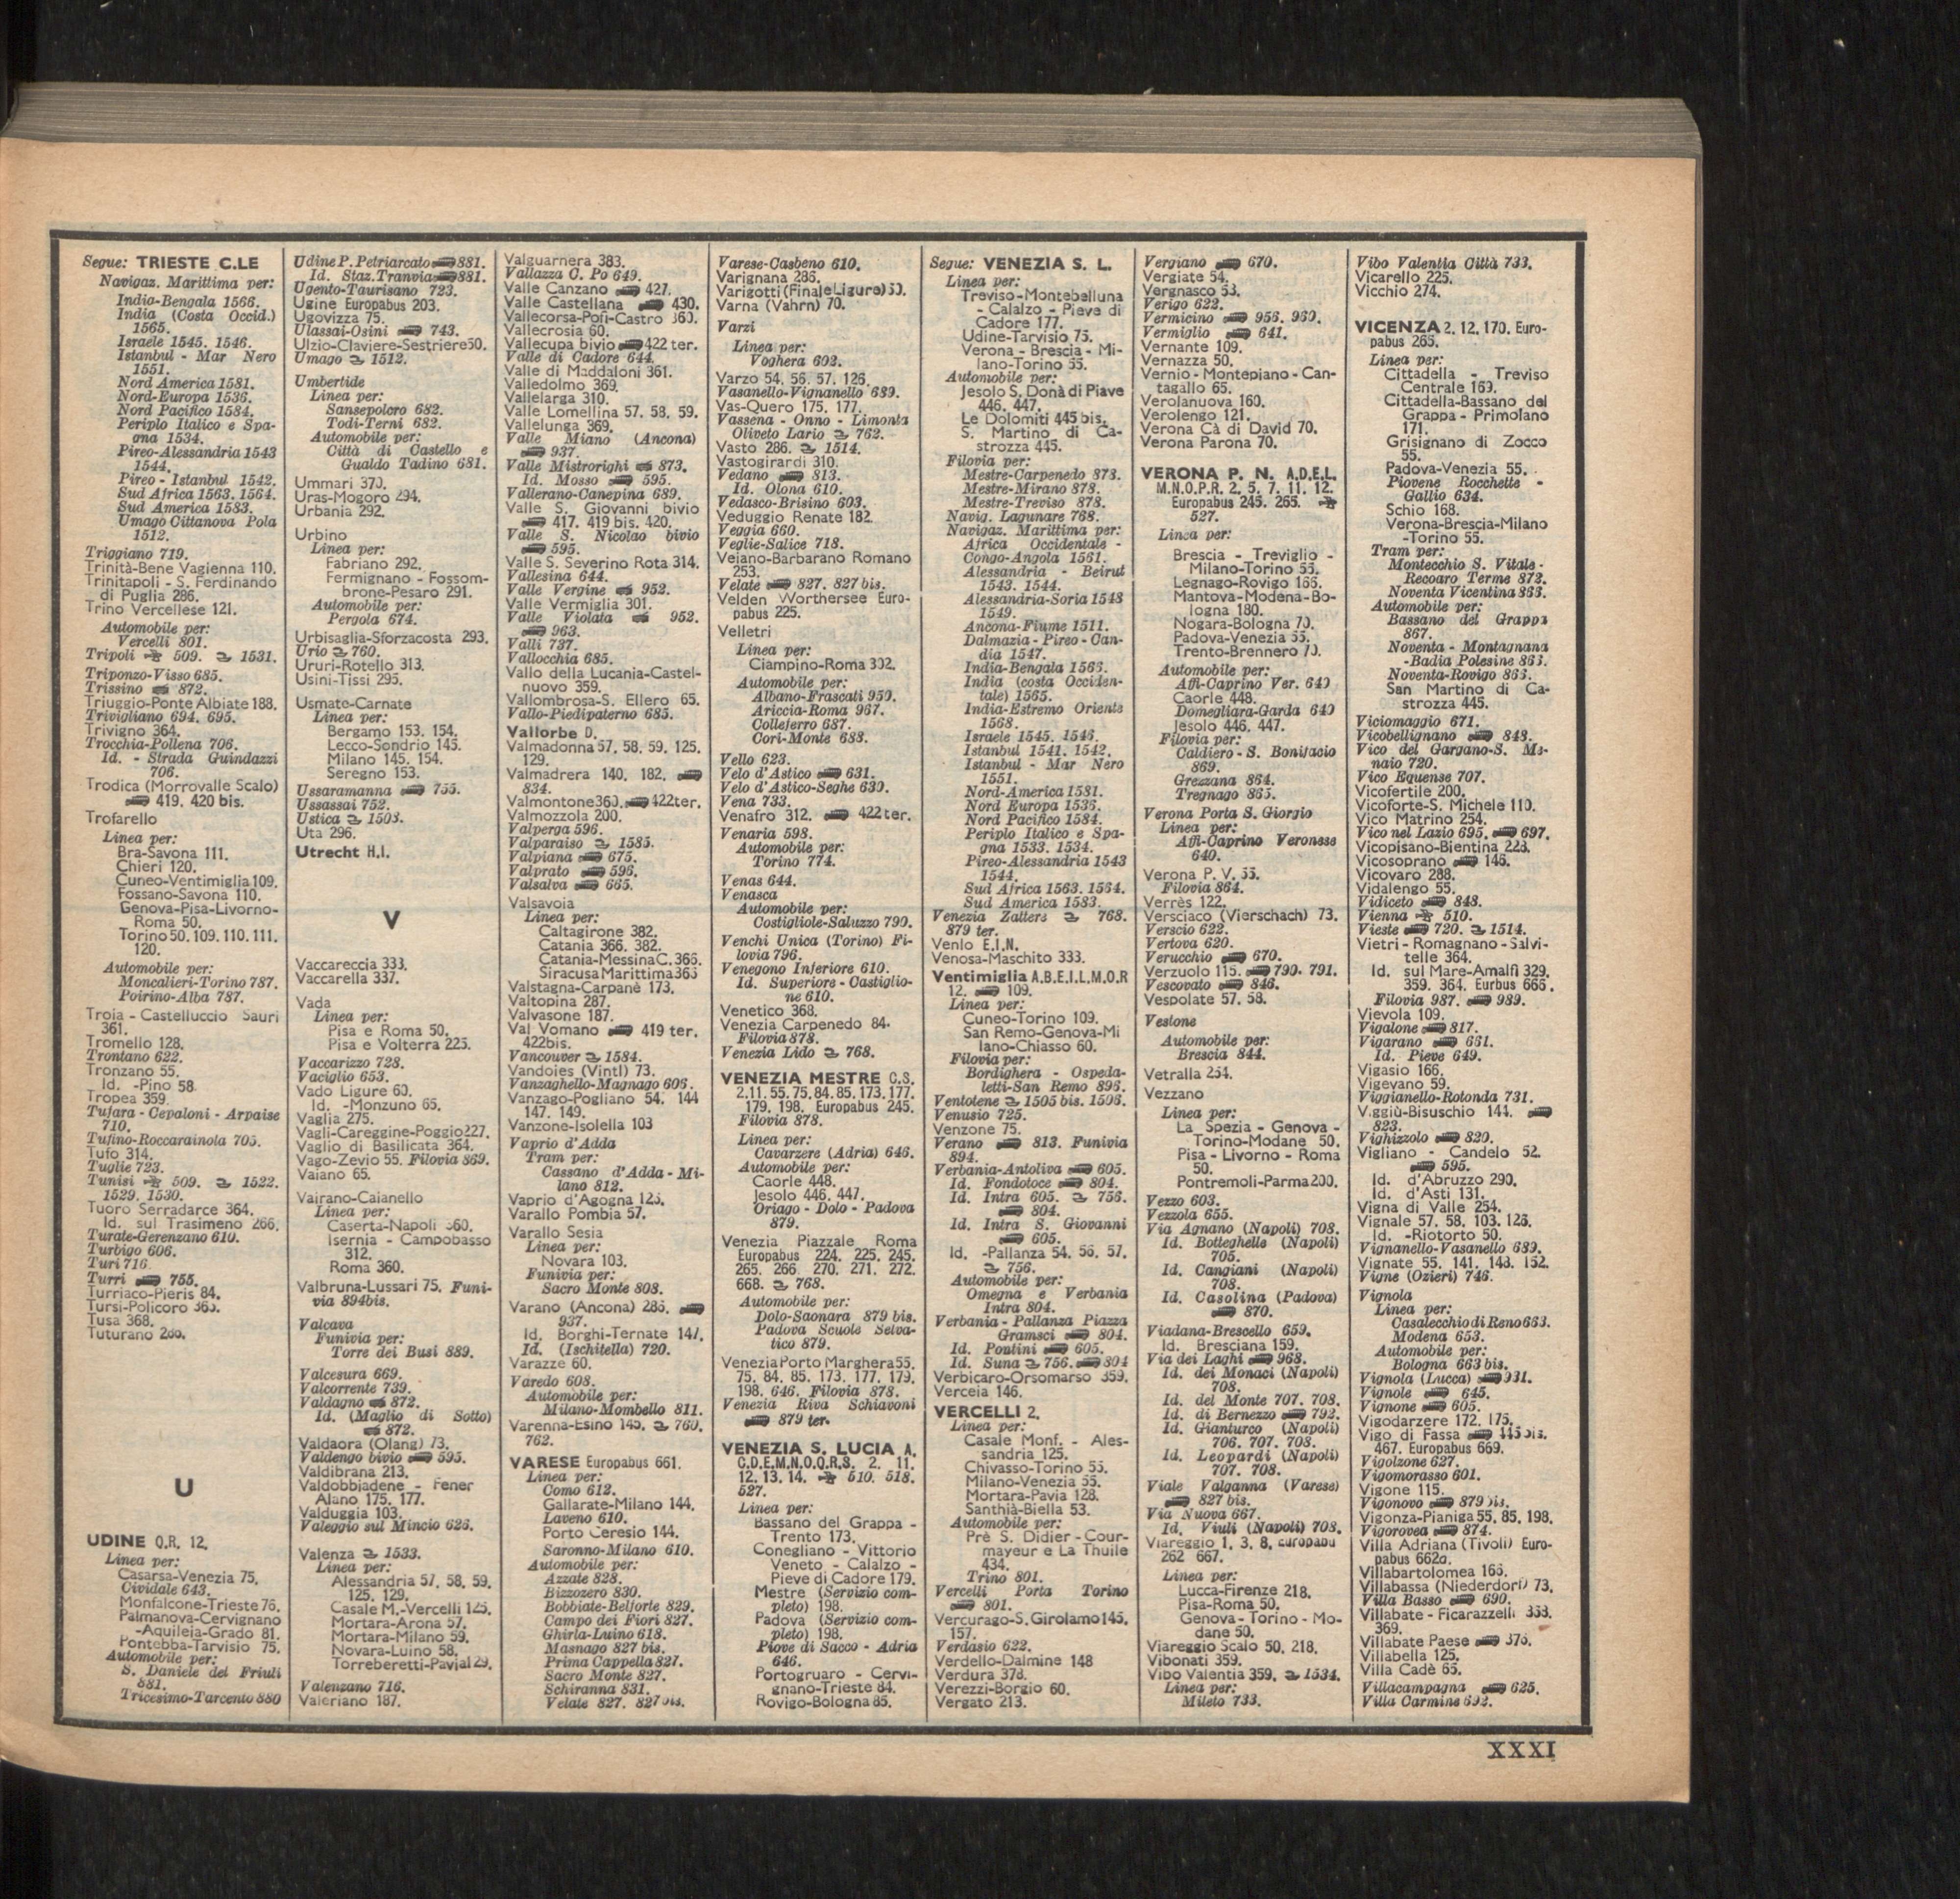 Segue: TRIESTE C.LE
Navigaz. Marittima per:
India-Bengala 1566.
India (Costa Occid.)
1565.
Israele 1545. 1546.
Istanbul - Mar Nero
1551.
Nord America 1581.
Nord-Europa 1536.
Nord Pacifico 1584.
Periplo Italico e Spa-
gna 1534.
Pireo-Alessandria 1543
1544.
Pireo - Istanbul 1542.
Sud Africa 1563. 1564.
Sud America 1583.
Umago Cittanova Pola
1512.
Triggiano 719.
Trinità-Bene Vagienna 110.
Trinitapoli - S. Ferdinando
di Puglia 286.
Trino Vercellese 121.
Automobile per:
Vercelli 801.
Tripoli 509. 1531.
Triponzo-Visso 685.
Trissino 872.
Triuggio-Ponte Albiate 188.
Trivigliano 694. 695.
Trivigno 364.
Trocchia-Pollena 706.
Id. - Strada Guindazzi
706.
Trodica (Morrovalle Scalo)
419. 420 bis.
Trofarello
Linea per:
Bra-Savona 111.
Chieri 120.
Cuneo-Ventimiglia 109.
Fossano-Savona 110.
Genova-Pisa-Livorno-
Roma 50.
Torino 50. 109. 110. 111.
120.
Automobile per:
Moncalieri-Torino 787.
Poirino-Alba 787.
Troia - Castelluccio Sauri
361.
Tromello 128.
Trontano 622.
Tronzano 55.
Id. -Pino 58.
Tropea 359.
Tufara - Cepaloni - Arpaise
710.
Tufino-Roccarainola 705.
Tufo 314.
Tuglie 723.
Tunisi 509. 1522.
1529. 1530.
Tuoro Serradarce 364.
Id. sul Trasimeno 266.
Turate-Gerenzano 610.
Turbigo 606.
Turi 716.
Turri 755.
Turriaco-Pieris 84.
Tursi-Policoro 365.
Tusa 368.
Tuturano
U
UDINE Q.R. 12.
Linea per:
Casarsa-Venezia 75.
Cividale 643.
Monfalcone-Trieste 76.
Palmanova-Cervignano
-Aquileja-Grado 81.
Pontebba-Tarvisio 75.
Automobile per:
S. Daniele del Friuli
881.
Tricesimo-Tarcento 880
Udine P. Petriarcato 881.
Id. Staz. Tranvia 881.
Ugento-Taurisano 723.
Ugine Europabus 203.
Ugovizza 75.
Ulassai-Osini 743.
Ulzio-Claviere-Sestriere 50.
Umago 1512.
Umbertide
Linea per:
Sansepolcro 682.
Todi-Terni 682.
Automobile per:
Città di Castello e
Gualdo Tadino 681.
Ummari 370.
Uras-Mogoro 294.
Urbania 292.
Urbino
Linea per:
Fabriano 292.
Fermignano - Fossom-
brone-Pesaro 291.
Automobile per:
Pergola 674.
Urbisaglia-Sforzacosta 293.
Urio 760.
Ururi-Rotello 313.
Usini-Tissi 295.
Usmate-Carnate
Linea per:
Bergamo 153. 154.
Lecco-Sondrio 145.
Milano 145. 154.
Seregno 153.
Ussaramanna 755.
Ussassai 752.
Ustica 1503.
Uta 296.
Utrecht H.I.
V
Vaccareccia 333.
Vaccarella 337.
Vada
Linea per:
Pisa e Roma 50.
Pisa e Volterra 225.
Vaccarizzo 728.
Vaciglio 653.
Vado Ligure 60.
Id. -Monzuno 65.
Vaglia 275.
Vagli-Careggine-Poggio 227.
Vaglio di Basilicata 364.
Vago-Zevio 55. Filovia 869.
Vaiano 65.
Vairano-Caianello
Linea per:
Caserta-Napoli 360.
Isernia - Campobasso
312.
Roma 360.
Valbruna-Lussari 75. Funi-
via 894bis.
Valcava
Funivia per:
Torre dei Busi 889.
Valcesura 669.
Valcorrente 739.
Valdagno 872.
Id. (Maglio di Sotto)
872.
Valdaora (Olang) 73.
Valdengo bivio 595.
Valdibrana 213.
Valdobbiadene - Fener
Alano 175. 177.
Valduggia 103.
Valeggio sul Mincio 626.
Valenza 1533.
Linea per:
Alessandria 57. 58. 59.
125. 129.
Casale M.-Vercelli 125.
Mortara-Arona 57.
Mortara-Milano 59.
Novara-Luino 58.
Torreberetti-Pavia 129.
Valenzano 716.
Valeriano 187.
Valguarnera 383.
Vallazza C. Po 649.
Valle Canzano 427.
Valle Castellana 430.
Vallecorsa-Pofi-Castro 360.
Vallecrosia 60.
Vallecupa bivio 422 ter.
Valle di Cadore 644.
Valle di Maddaloni 361.
Valledolmo 369.
Vallelarga 310.
Valle Lomellina 57. 58. 59.
Vallelunga 369.
Valle Miano (Ancona)
937.
Valle Mistrorighi 873.
Id. Mosso 595.
Vallerano-Canepina 689.
Valle S. Giovanni bivio
417. 419 bis. 420.
Valle S. Nicolao bivio
595.
Valle S. Severino Rota 314.
Vallesina 644.
Valle Vergine 952.
Valle Vermiglia 301.
Valle Violata 952.
963.
Valli 737.
Vallocchia 685.
Vallo della Lucania-Castel-
nuovo 359.
Vallombrosa-S. Ellero 65.
Vallo-Piedipaterno 685.
Vallorbe D.
Valmadonna 57. 58. 59. 125.
129.
Valmadrera 140. 182.
834.
Valmontone 360. 422ter.
Valmozzola 200.
Valperga 596.
Valparaiso 1585.
Valpiana 675.
Valprato 596.
Valsalva 665.
Valsavoia
Linea per:
Caltagirone 382.
Catania 366. 382.
Catania-Messina C. 366.
Siracusa Marittima 366
Valstagna-Carpanè 173.
Valtopina 287.
Valvasone 187.
Val Vomano 419 ter.
422bis.
Vancouver 1584.
Vandoies (Vintl) 73.
Vanzaghello-Magnago 606.
Vanzago-Pogliano 54. 144
147. 149.
Vanzone-Isolella 103
Vaprio d'Adda
Tram per:
Cassano d'Adda - Mi-
lano 812.
Vaprio d'Agogna 126.
Varallo Pombia 57.
Varallo Sesia
Linea per:
Novara 103.
Funivia per:
Sacro Monte 808.
Varano (Ancona) 286.
937.
Id. Borghi-Ternate 147.
Id. (Ischitella) 720.
Varazze 60.
Varedo 608.
Automobile per:
Milano-Mombello 811.
Varenna-Esino 145. 760.
762.
VARESE Europabus 661.
Linea per:
Como 612.
Gallarate-Milano 144.
Laveno 610.
Porto Ceresio 144.
Saronno-Milano 610.
Automobile per:
Azzate 828.
Bizzozero 830.
Bobbiate-Belforte 829.
Campo dei Fiori 827.
Ghirla-Luino 618.
Masnago 827 bis.
Prima Cappella 827.
Sacro Monte 827.
Schiranna 831.
Velate 827. 827 bis.
Varese-Casbeno 610.
Varignana 286.
Varigotti (Finale Ligure) 50.
Varna (Vahrn) 70.
Varzi
Linea per:
Voghera 602.
Varzo 54. 56. 57. 126.
Vasanello-Vignanello 689.
Vas-Quero 175. 177.
Vassena - Onno - Limonta
Oliveto Lario 762.
Vasto 286. 1514.
Vastogirardi 310.
Vedano 813.
Id. Olona 610.
Vedasco-Brisino 603.
Veduggio Renate 182.
Veggia 660.
Veglie-Salice 718.
Veiano-Barbarano Romano
253.
Velate 827. 827 bis.
Velden Worthersee Euro-
pabus 225.
Velletri
Linea per:
Ciampino-Roma 302.
Automobile per:
Albano-Frascati 959.
Ariccia-Roma 967.
Colleferro 687.
Cori-Monte 688.
Vello 623.
Velo d'Astico 631.
Velo d'Astico-Seghe 630.
Vena 733.
Venafro 312. 422 ter.
Venaria 598.
Automobile per:
Torino 774.
Venas 644.
Venasca
Automobile per:
Costigliole-Saluzzo 790.
Venchi Unica (Torino) Fi-
lovia 796.
Venegono Inferiore 610.
Id. Superiore - Castiglio-
ne 610.
Venetico 368.
Venezia Carpenedo 84.
Filovia 878.
Venezia Lido 768.
VENEZIA MESTRE C.S.
2.11. 55. 75. 84. 85. 173. 177.
179. 198. Europabus 245.
Filovia 878.
Linea per:
Cavarzere (Adria) 646.
Automobile per:
Caorle 448.
Jesolo 446. 447.
Oriago - Dolo - Padova
879.
Venezia Piazzale Roma
Europabus 224. 225. 245.
265. 266. 270. 271. 272.
668. 768.
Automobile per:
Dolo-Saonara 879 bis.
Padova Scuole Selva-
tico 879.
Venezia Porto Marghera 55.
75. 84. 85. 173. 177. 179.
198. 646. Filovia 878.
Venezia Riva Schiavoni
879 ter.
VENEZIA S. LUCIA A.
C.D.E.M.N.O.Q.R.S. 2. 11.
12. 13. 14. 510. 518.
527.
Linea per:
Bassano del Grappa -
Trento 173.
Conegliano - Vittorio
Veneto - Calalzo -
Pieve di Cadore 179.
Mestre (Servizio com-
pleto) 198.
Padova (Servizio com-
pleto) 198.
Piove di Sacco - Adria
646.
Portogruaro - Cervi-
gnano-Trieste 84.
Rovigo-Bologna 85.
Segue: VENEZIA S. L.
Linea per:
Treviso-Montebelluna
- Calalzo - Pieve di
Cadore 177.
Udine-Tarvisio 75.
Verona - Brescia - Mi-
lano-Torino 55.
Automobile per:
Jesolo S. Donà di Piave
446. 447.
Le Dolomiti 445 bis.
S. Martino di Ca-
strozza 445.
Filovia per:
Mestre-Carpenedo 878.
Mestre-Mirano 878.
Mestre-Treviso 878.
Navig. Lagunare 768.
Navigaz. Marittima per:
Africa Occidentale -
Congo-Angola 1561.
Alessandria - Beirut
1543. 1544.
Alessandria-Soria 1548
1549.
Ancona-Fiume 1511.
Dalmazia - Pireo - Can-
dia 1547.
India-Bengala 1566.
India (costa Occiden-
tale) 1565.
India-Estremo Oriente
1568.
Israele 1545. 1546.
Istanbul 1541. 1542.
Istanbul - Mar Nero
1551.
Nord-America 1581.
Nord Europa 1536.
Nord Pacifico 1584.
Periplo Italico e Spa-
gna 1533. 1534.
Pireo-Alessandria 1543
1544.
Sud Africa 1563. 1564.
Sud America 1583.
Venezia Zattere 768.
879 ter.
Venlo E.I.N.
Venosa-Maschito 333.
Ventimiglia A.B.E.I.L.M.O.R
12. 109.
Linea per:
Cuneo-Torino 109.
San Remo-Genova-Mi
lano-Chiasso 60.
Filovia per:
Bordighera - Ospeda-
letti-San Remo 896.
Ventotene 1505 bis. 1506.
Venusio 725.
Venzone 75.
Verano 813. Funivia
894.
Verbania-Antoliva 605.
Id. Fondotoce 804.
Id. Intra 605. 756.
804.
Id. Intra S. Giovanni
605.
Id. -Pallanza 54. 56. 57.
756.
Automobile per:
Omegna e Verbania
Intra 804.
Verbania - Pallanza Piazza
Gramsci 804.
Id. Pontini 605.
Id. Suna 756. 804
Verbicaro-Orsomarso 359.
Verceia 146.
VERCELLI 2.
Linea per:
Casale Monf. - Ales-
sandria 125.
Chivasso-Torino 55.
Milano-Venezia 55.
Mortara-Pavia 128.
Santhià-Biella 53.
Automobile per:
Prè S. Didier - Cour-
mayeur e La Thuile
434.
Trino 801.
Vercelli Porta Torino
801.
Vercurago-S. Girolamo 145.
157.
Verdasio 622.
Verdello-Dalmine 148
Verdura 378.
Verezzi-Borgio 60.
Vergato 213.
Vergiano 670.
Vergiate 54.
Vergnasco 53.
Verigo 622.
Vermicino 956. 960.
Vermiglio 641.
Vernante 109.
Vernazza 50.
Vernio - Montepiano - Can-
tagallo 65.
Verolanuova 160.
Verolengo 121.
Verona Cà di David 70.
Verona Parona 70.
VERONA P. N. A.D.E.L.
M.N.O.P.R. 2. 5. 7. 11. 12.
Europabus 245. 265.
527.
Linea per:
Brescia - Treviglio -
Milano-Torino 55.
Legnago-Rovigo 166.
Mantova-Modena-Bo-
logna 180.
Nogara-Bologna 70.
Padova-Venezia 55.
Trento-Brennero 70.
Automobile per:
Affi-Caprino Ver. 640
Caorle 448.
Domegliara-Garda 640
Jesolo 446. 447.
Filovia per:
Caldiero - S. Bonifacio
869.
Grezzana 864.
Tregnago 865.
Verona Porta S. Giorgio
Linea per:
Affi-Caprino Veronese
640.
Verona P. V. 55.
Filovia 864.
Verrès 122.
Versciaco (Vierschach) 73.
Verscio 622.
Vertova 620.
Verucchio 670.
Verzuolo 115. 790. 791.
Vescovato 846.
Vespolate 57. 58.
Vestone
Automobile per:
Brescia 844.
Vetralla 254.
Vezzano
Linea per:
La Spezia - Genova -
Torino-Modane 50.
Pisa - Livorno - Roma
50.
Pontremoli-Parma 200.
Vezzo 603.
Vezzola 655.
Via Agnano (Napoli) 708.
Id. Botteghelle (Napoli)
705.
Id. Cangiani (Napoli)
708.
Id. Casolina (Padova)
870.
Viadana-Brescello 659.
Id. Bresciana 159.
Via dei Laghi 968.
Id. dei Monaci (Napoli)
708.
Id. del Monte 707. 708.
Id. di Bernezzo 792.
Id. Gianturco (Napoli)
706. 707. 708.
Id. Leopardi (Napoli)
707. 708.
Viale Valganna (Varese)
827 bis.
Via Nuova 667.
Id. Viuli (Napoli) 708.
Viareggio 1. 3. 8. Europabu
262 667.
Linea per:
Lucca-Firenze 218.
Pisa-Roma 50.
Genova - Torino - Mo-
dane 50.
Viareggio Scalo 50. 218.
Vibonati 359.
Vibo Valentia 359. 1534.
Linea per:
Mileto 733.
Vibo Valentia Città 733.
Vicarello 225.
Vicchio 274.
VICENZA 2. 12. 170. Euro-
pabus 265.
Linea per:
Cittadella - Treviso
Centrale 169.
Cittadella-Bassano del
Grappa - Primolano
171.
Grisignano di Zocco
55.
Padova-Venezia 55.
Piovene Rocchette -
Gallio 634.
Schio 168.
Verona-Brescia-Milano
-Torino 55.
Tram per:
Montecchio S. Vitale -
Recoaro Terme 872.
Noventa Vicentina 863.
Automobile per:
Bassano del Grappa
867.
Noventa - Montagnana
-Badia Polesine 863.
Noventa-Rovigo 863.
San Martino di Ca-
strozza 445.
Viciomaggio 671.
Vicobellignano 848.
Vico del Gargano-S. Me-
naio 720.
Vico Equense 707.
Vicofertile 200.
Vicoforte-S. Michele 110.
Vico Matrino 254.
Vico nel Lazio 695. 697.
Vicopisano-Bientina 228.
Vicosoprano 146.
Vicovaro 288.
Vidalengo 55.
Vidiceto 848.
Vienna 510.
Vieste 720. 1514.
Vietri - Romagnano - Salvi-
telle 364.
Id. sul Mare-Amalfi 329.
359. 364. Eurbus 666.
Filovia 987. 989.
Vievola 109.
Vigalone 817.
Vigarano 661.
Id. Pieve 649.
Vigasio 166.
Vigevano 59.
Viggianello-Rotonda 731.
Viggiù-Bisuschio 144.
823.
Vighizzolo 820.
Vigliano - Candelo 52.
595.
Id. d'Abruzzo 290.
Id. d'Asti 131.
Vigna di Valle 254.
Vignale 57. 58. 103. 126.
Id. -Riotorto 50.
Vignanello-Vasanello 689.
Vignate 55. 141. 148. 152.
Vigne (Ozieri) 746.
Vignola
Linea per:
Casalecchio di Reno 663.
Modena 653.
Automobile per:
Bologna 663 bis.
Vignola (Lucca) 931.
Vignole 645.
Vignone 605.
Vigodarzere 172. 175.
Vigo di Fassa 445 bis.
467. Europabus 669.
Vigolzone 627.
Vigomorasso 601.
Vigone 115.
Vigonovo 879 bis.
Vigonza-Pianiga 55. 85. 198.
Vigorovea 874.
Villa Adriana (Tivoli) Euro-
pabus 662a.
Villabartolomea 166.
Villabassa (Niederdorf) 73.
Villa Basso 690.
Villabate - Ficarazzelli 368.
369.
Villabate Paese 376.
Villabella 125.
Villa Cadè 65.
Villacampagna 625.
Villa Carmine 692.
XXXI